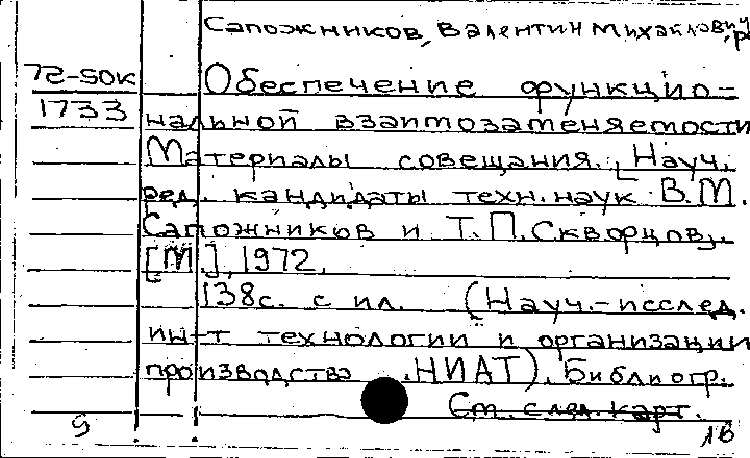 Сапожников, Валентин Михайлович, р
72-50к Обеспечение функцио-
1733 нальной взаимозаменяемости
Материалы совещания. [Науч.
ред. кандидаты техн. наук В.М.
Сапожников и Т.П. Скворцов].
[М.], 1972.
138с. с ил. (Науч.-исслед.
ин-т технологии и организации
производства НИАТ). Библиогр.
См. след. карт.
9 1в